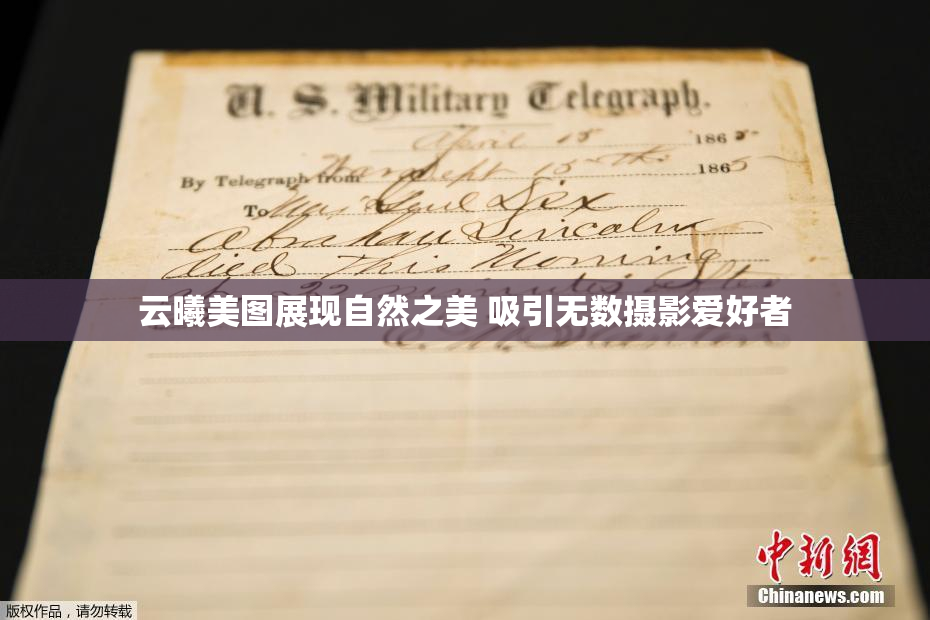 U. S. Military Telegraph.
April 15 1865
By Telegraph from War Dept 15th 1865
To Maj Genl Dix
Abraham Lincoln
died This Morning
at 22 minutes after
云曦美图展现自然之美 吸引无数摄影爱好者
E. M. Stanton
中新網
Chinanews.com
版权作品，请勿转载